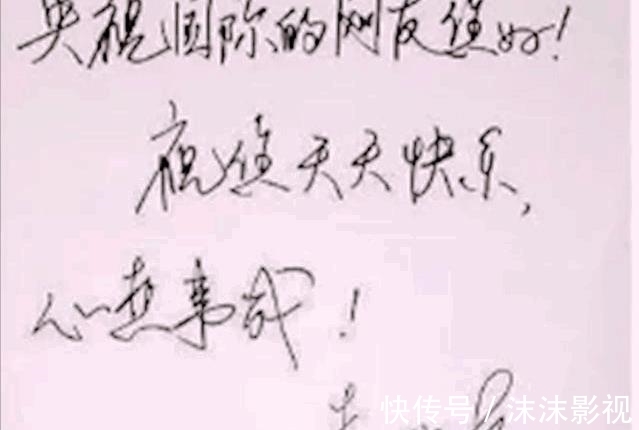 央视国际的网友您好!
祝您天天快乐,
心想事成!
快传号 / 沫沫影视